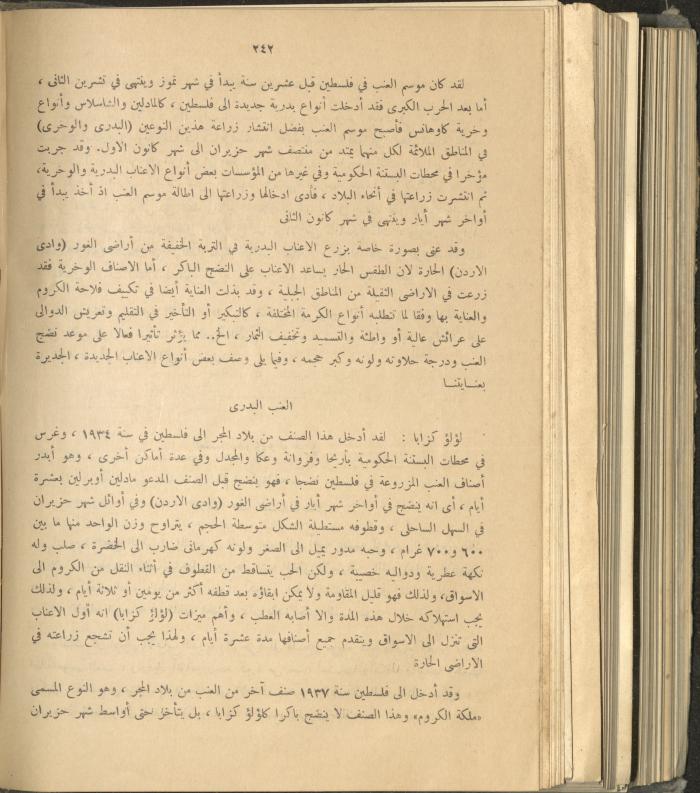 ٢٤٢
لقد كان موسم العنب في فلسطين قبل عشرين سنة يبدأ في شهر تموز وينتهى في تشرين الثانى ،
أما بعد الحرب الكبرى فقد أدخلت أنواع بدرية جديدة الى فلسطين ، كالمادلين والشاسلاس وأنواع
وخرية كاوهانس فأصبح موسم العنب بفضل انتشار زراعة هذين النوعين (البدرى والوخرى)
في المناطق الملائمة لكل منهما يمتد من منتصف شهر حزيران الى شهر كانون الاول. وقد جربت
مؤخرا في محطات البستنة الحكومية وفي غيرها من المؤسسات بعض أنواع الاعناب البدرية والوخرية،
ثم انتشرت زراعتها في أنحاء البلاد ، فأدى ادخالها وزراعتها الى اطالة موسم العنب اذ أخذ يبدأ في
أواخر شهر أيار وينتهى في شهر كانون الثانى
وقد عنى بصورة خاصة بزرع الاعناب البدرية في التربة الخفيفة من أراضى الغور (وادى
الاردن) الحارة لان الطقس الحار يساعد الاعناب على النضج الباكر ، أما الاصناف الوخرية فقد
زرعت في الاراضى الثقيلة من المناطق الجبلية ، وقد بذلت العناية أيضا في تكييف فلاحة الكروم
والعناية بها وفقا لما تتطلبه أنواع الكرمة المختلفة ، كالتبكير أو التأخير في التقليم وتعريش الدوالى
على عرائش عالية أو واطئة والتسميد وتخفيف الثمار ، الخ.. مما يؤثر تأثيرا فعالا على موعد نضج
العنب ودرجة حلاوته ولونه وكبر حجمه ، وفيما يلى وصف بعض أنواع الاعناب الجديدة ، الجديرة
بعنايتنا
العنب البدرى
لؤلؤ كزابا : لقد أدخل هذا الصنف من بلاد المجر الى فلسطين في سنة ١٩٣٤ ، وغرس
في محطات البستنة الحكومية بأريحا وفروانة وعكا والمجدل وفي عدة أماكن أخرى ، وهو أبدر
أصناف العنب المزروعة في فلسطين نضجا ، فهو ينضج قبل الصنف المدعو مادلين أوبرلين بعشرة
أيام ، أى انه ينضج في أواخر شهر أيار في أراضى الغور (وادى الاردن) وفي أوائل شهر حزيران
في السهل الساحلى ، وقطوفه مستطيلة الشكل متوسطة الحجم ، يتراوح وزن الواحد منها ما بين
٦٠٠ و٧٠٠ غرام ، وحبه مدور يميل الى الصغر ولونه كهرمانى ضارب الى الخضرة ، صلب وله
نكهة عطرية ودواليه خصيبة ، ولكن الحب يتساقط من القطوف في أثناء النقل من الكروم الى
الاسواق، ولذلك فهو قليل المقاومة ولا يمكن ابقاؤه بعد قطفه أكثر من يومين أو ثلاثة أيام ، ولذلك
يجب استهلاكه خلال هذه المدة والا أصابه العطب ، وأهم ميزات (لؤلؤ كزابا) انه أول الاعناب
التى تنزل الى الاسواق ويتقدم جميع أصنافها مدة عشرة أيام ، ولهذا يجب أن تشجع زراعته في
الاراضى الحارة
وقد أدخل الى فلسطين سنة ١٩٣٧ صنف آخر من العنب من بلاد المجر ، وهو النوع المسمى
«ملكة الكروم» وهذا الصنف لا ينضج باكرا كلؤلؤ كزابا ، بل يتأخر حتى أواسط شهر حزيران